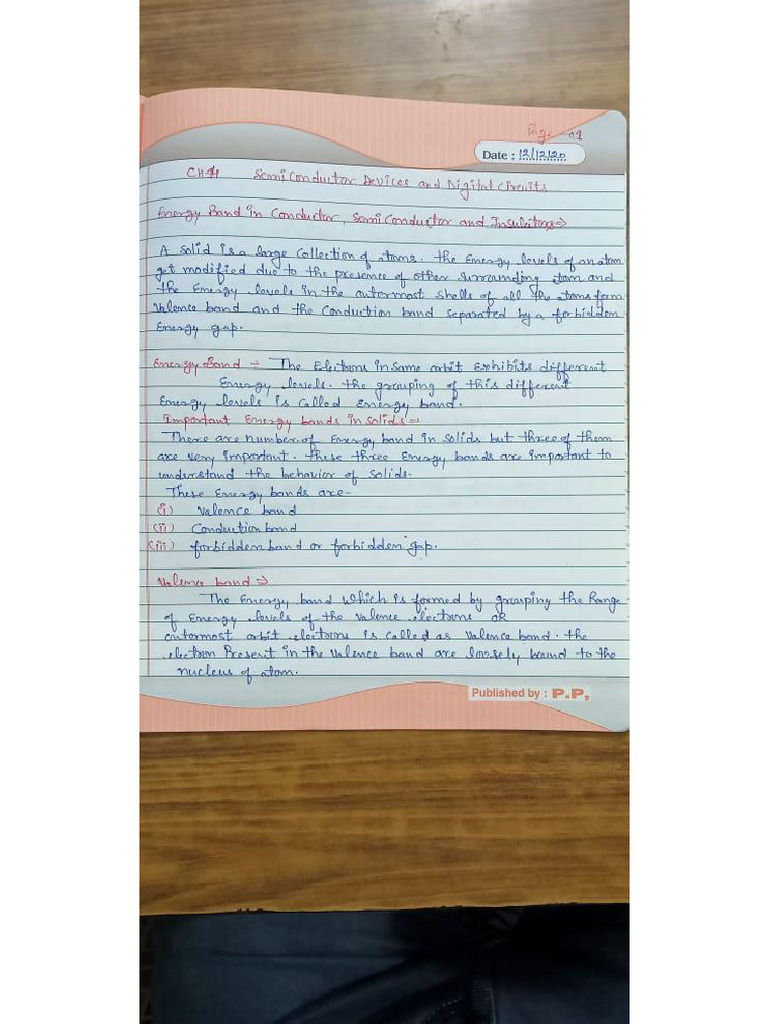 Page-01
Date : 12/12/20
CH-14 Semiconductor Devices and Digital Circuits
Energy Band in Conductor, Semiconductor and Insulators ⇒
A solid is a large collection of atoms. the Energy levels of an atom
get modified due to the presence of other surrounding atom and
the Energy levels in the outermost shells of all the atoms form
valence band and the conduction band separated by a forbidden
Energy gap.
Energy Band :- The Electrons in same orbit Exhibits different
Energy levels. the grouping of this different
Energy levels is called Energy band.
Important Energy bands in solids :-
There are number of Energy band in solids but three of them
are very important. these three Energy bands are important to
understand the behavior of solids.
These Energy bands are-
(i) Valence band
(ii) Conduction band
(iii) forbidden band or forbidden gap.
Valence band ⇒
The Energy band which is formed by grouping the Range
of Energy levels of the valence electrons OR
outermost orbit electrons is called as valence band. the
electron Present in the valence band are loosely bound to the
nucleus of atom.
Published by : P.P,